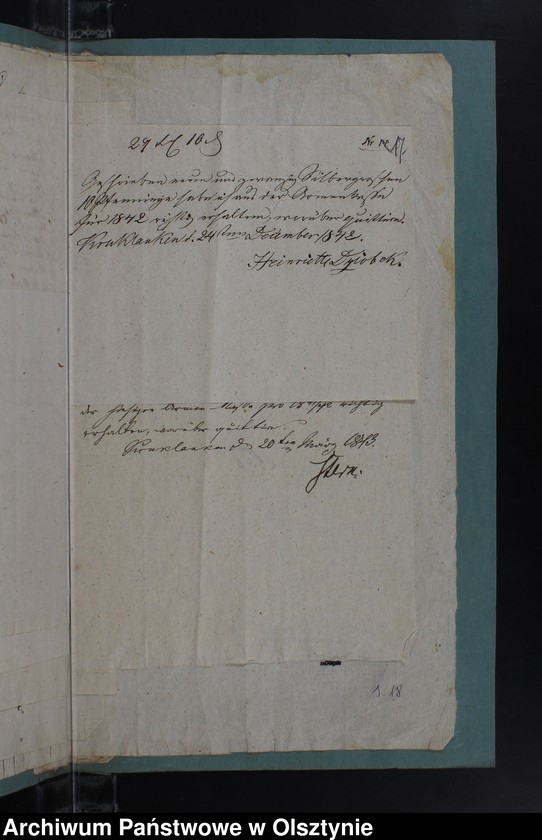 29 Sg 10 d
Geschrieben neun und zwanzig Silbergroschen
10 Pfenninge habe ich aus der Armenkasse
für 1842 richtig erhalten, worüber quittire.
Kruklanken d. 24ten Dezember 1842.
Heinriette Dziobek.
der hiesigen Armen-Kasse pro 1842 richtig
erhalten, worüber quittire.
Kruklanken d 20ten März 1843.
S. 18
Archiwum Państwowe w Olsztynie